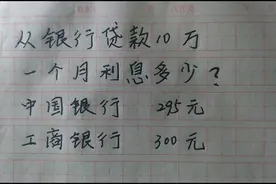 从银行贷款10万
一个月利息多少?
中国银行 295元
工商银行 300元